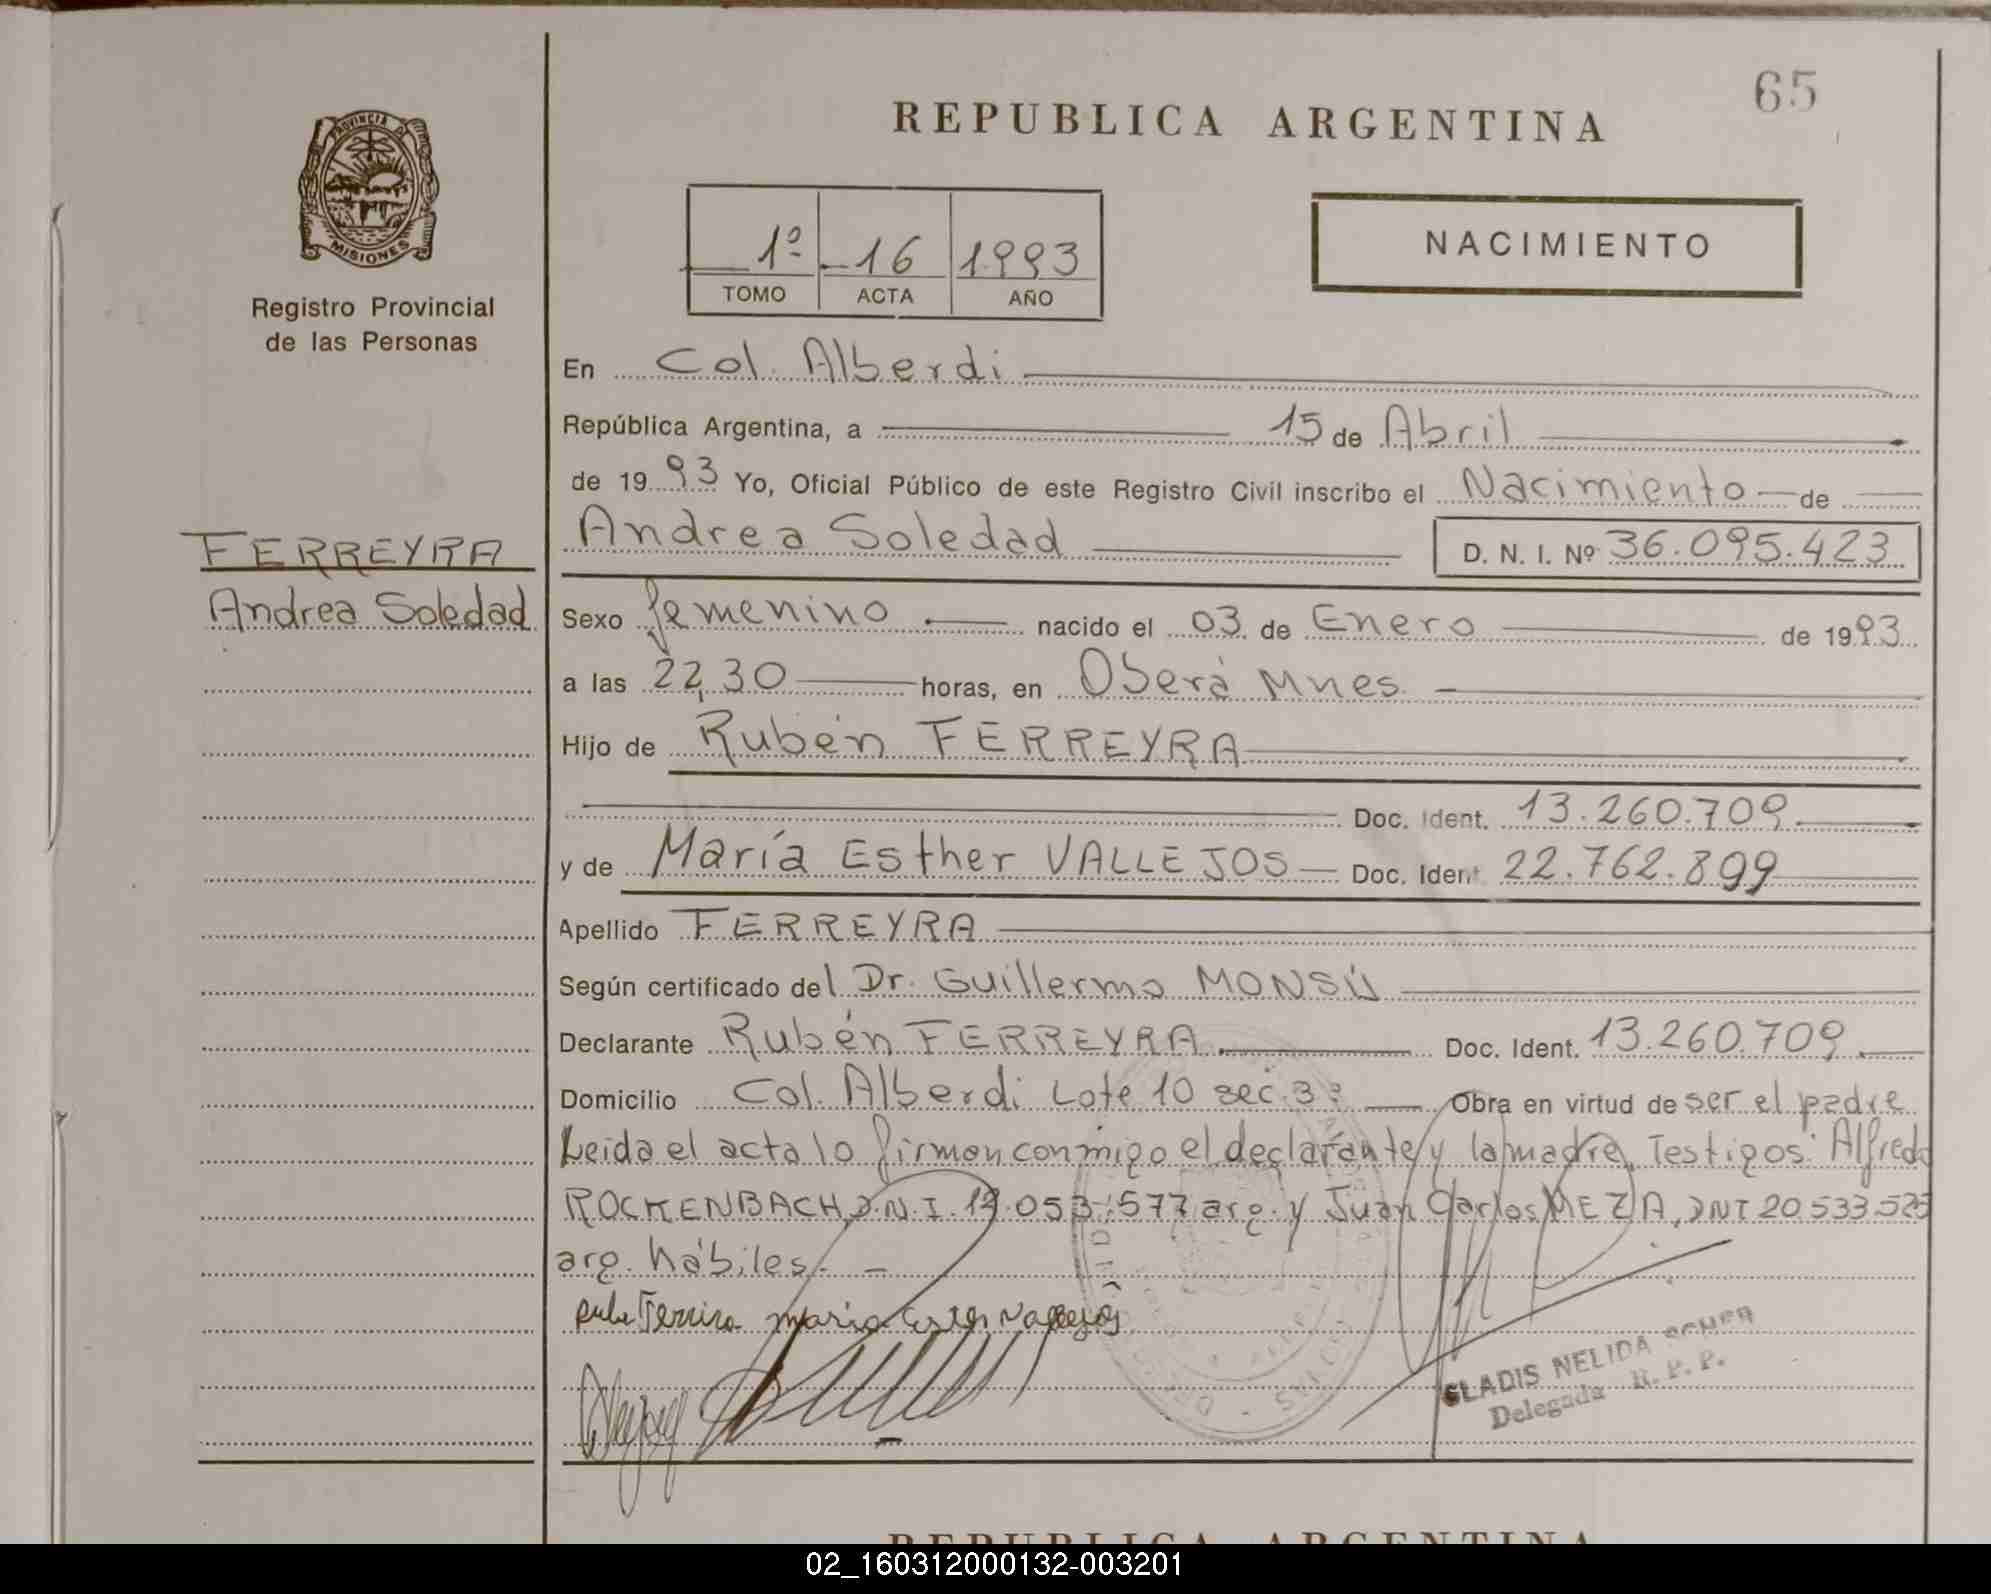 65
REPUBLICA ARGENTINA
PROVINCIA DE
MISIONES
Registro Provincial
de las Personas
1º 16 1993
TOMO ACTA AÑO
NACIMIENTO
En Col. Alberdi
República Argentina, a 15 de Abril
de 1993 Yo, Oficial Público de este Registro Civil inscribo el Nacimiento de
Andrea Soledad D. N. I. Nº 36.095.423
FERREYRA
Andrea Soledad
Sexo femenino nacido el 03 de Enero de 1993
a las 22,30 horas, en Oberá Mnes.
Hijo de Rubén FERREYRA
Doc. Ident. 13.260.709
y de María Esther VALLEJOS Doc. Ident. 22.762.899
Apellido FERREYRA
Según certificado del Dr. Guillermo MONSÚ
Declarante Rubén FERREYRA Doc. Ident. 13.260.709
Domicilio Col. Alberdi Lote 10 sec. 3ª Obra en virtud de ser el padre
Leida el acta lo firman conmigo el declarante y la madre. Testigos: Alfredo
ROCKENBACH, D.N.I. 053.577 arg. y Juan Carlos MEZA, DNI 20.533.525
arg. hábiles.
GLADIS NELIDA
Delegada R. P. P.
REPUBLICA ARGENTINA
02_160312000132-003201